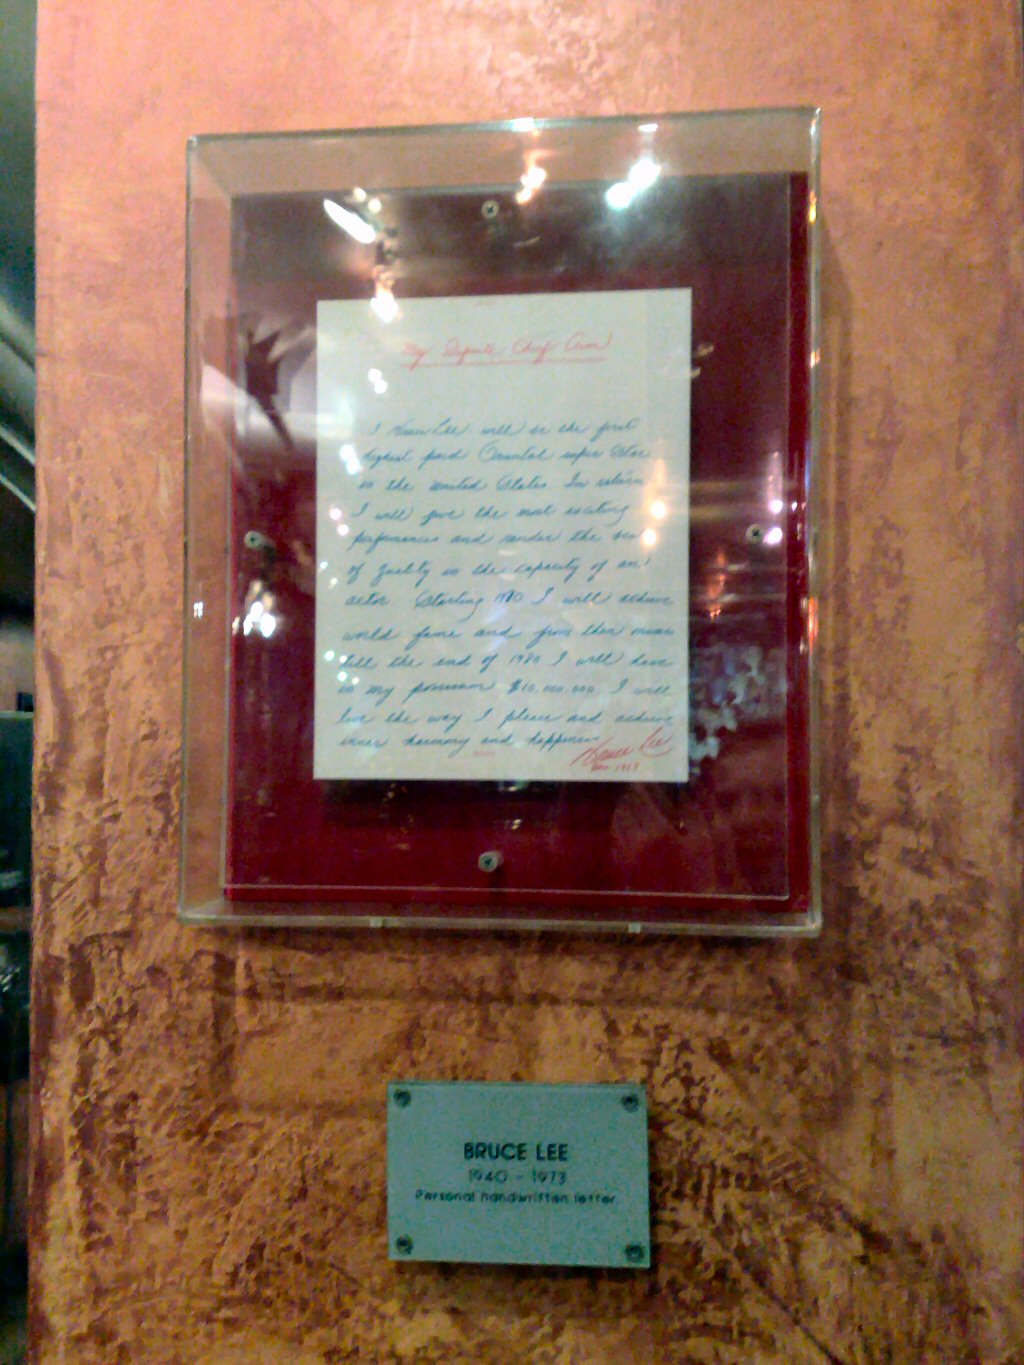 My Definite Chief Aim
I Bruce Lee will be the first
highest paid Oriental super Star
in the United States. In return
I will give the most exciting
performances and render the best
of quality in the capacity of an
actor. Starting 1970 I will achieve
world fame and from then
till the end of 1980 I will have
in my possession $10,000,000. I will
live the way I please and achieve
inner harmony and happiness
Bruce Lee
1969
BRUCE LEE
1940 - 1973
Personal handwritten letter